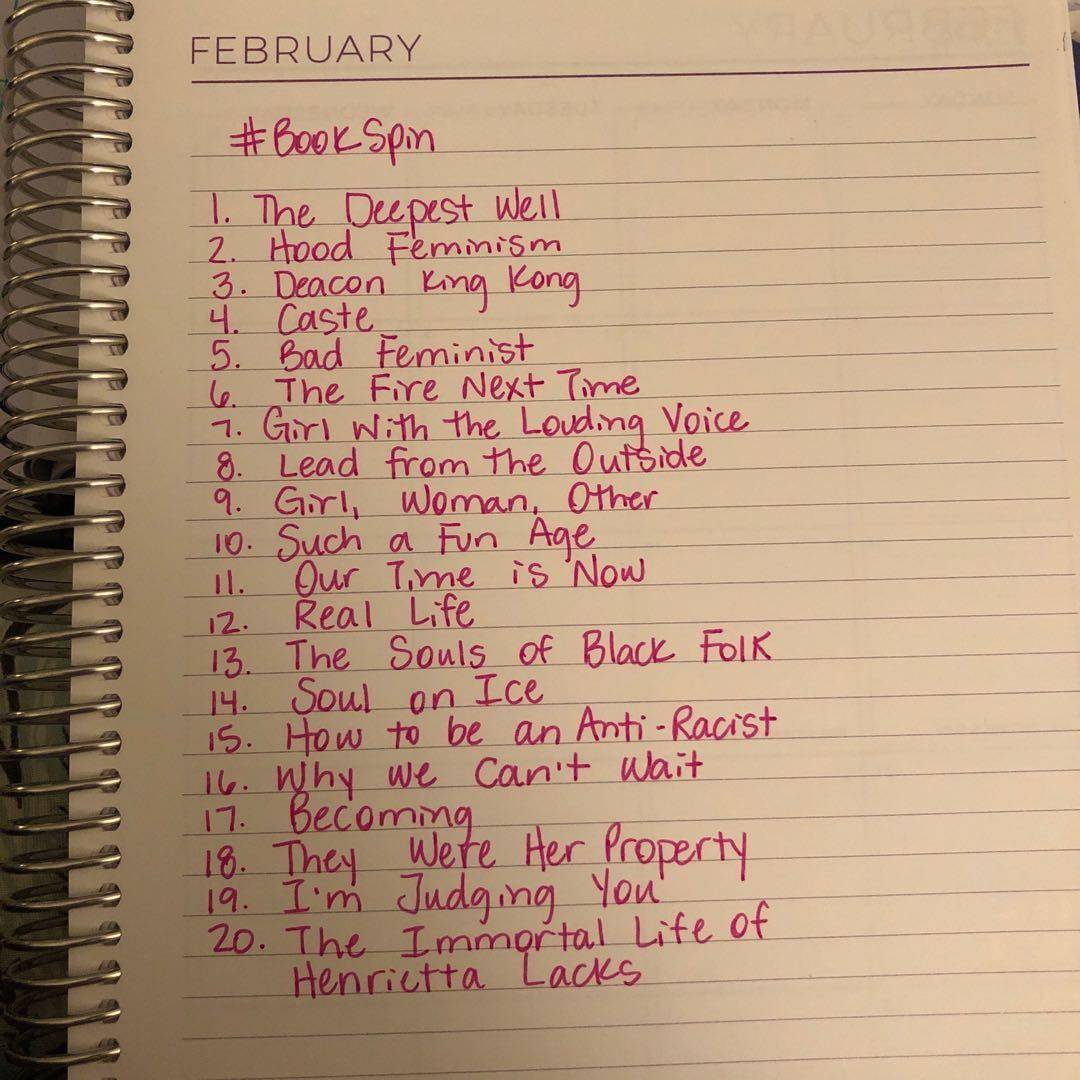 FEBRUARY
#BookSpin
1. The Deepest Well
2. Hood Feminism
3. Deacon King Kong
4. Caste
5. Bad Feminist
6. The Fire Next Time
7. Girl With the Louding Voice
8. Lead from the Outside
9. Girl, Woman, Other
10. Such a Fun Age
11. Our Time is Now
12. Real Life
13. The Souls of Black Folk
14. Soul on Ice
15. How to be an Anti-Racist
16. Why we Can't Wait
17. Becoming
18. They Were Her Property
19. I'm Judging You
20. The Immortal Life of
Henrietta Lacks